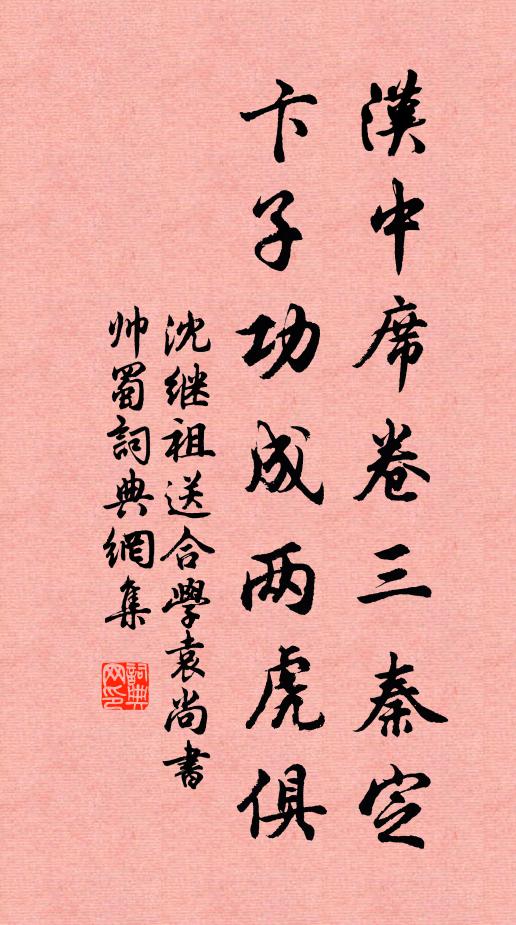 漢中席卷三秦定
卞子功成两虎俱
沈继祖送合學袁尚書
帅蜀詞典網集
詞典网印